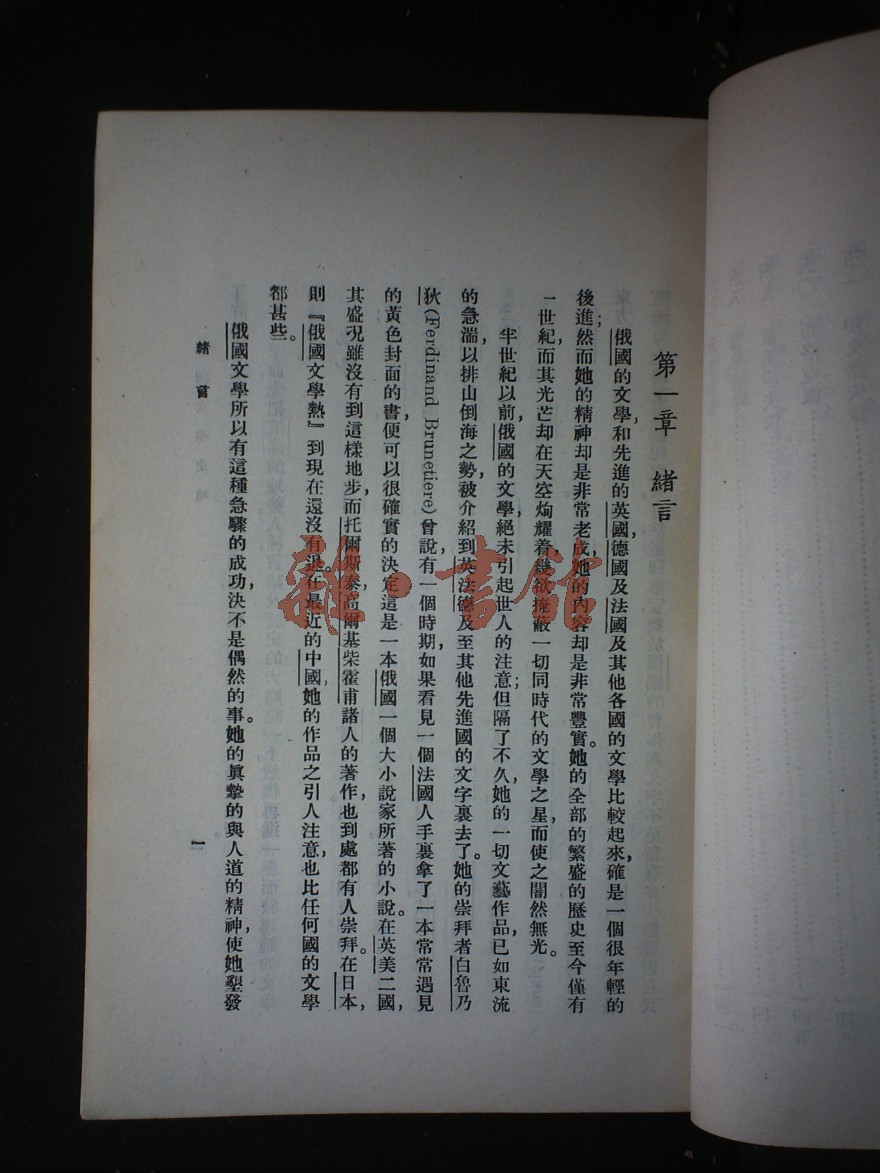 第一章 緒言
俄國的文學，和先進的英國，德國及法國及其他各國的文學比較起來，確是一個很年輕的
後進；然而她的精神却是非常老成，她的內容却是非常豐實。她的全部的繁盛的歷史至今僅有
一世紀，而其光芒却在天空炳耀着，幾欲掩蔽一切同時代的文學之星，而使之闇然無光。
半世紀以前，俄國的文學，絕未引起世人的注意；但隔了不久，她的一切文藝作品，已如東流
的急湍，以排山倒海之勢，被介紹到英法德及至其他先進國的文字裏去了。她的崇拜者白魯乃
狄(Ferdinand Brunetiere)曾說，有一個時期，如果看見一個法國人手裏拿了一本常常遇見
的黃色封面的書，便可以很確實的決定這是一本俄國一個大小說家所著的小說。在英美二國，
其盛況雖沒有到這樣地步，而托爾斯泰，高爾基，柴霍甫諸人的著作也到處都有人崇拜。在日本，
則『俄國文學熱』到現在還沒有退。在最近的中國，她的作品之引人注意，也比任何國的文學
都甚些。
俄國文學所以有這種急驟的成功，決不是偶然的事。她的眞摯的與人道的精神，使她墾發
緒言
一
龍 書館